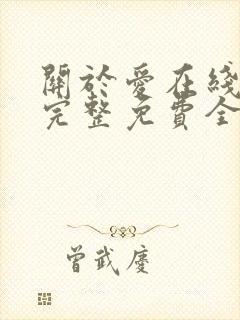 關於愛在綫
完整免費全
曾武慶